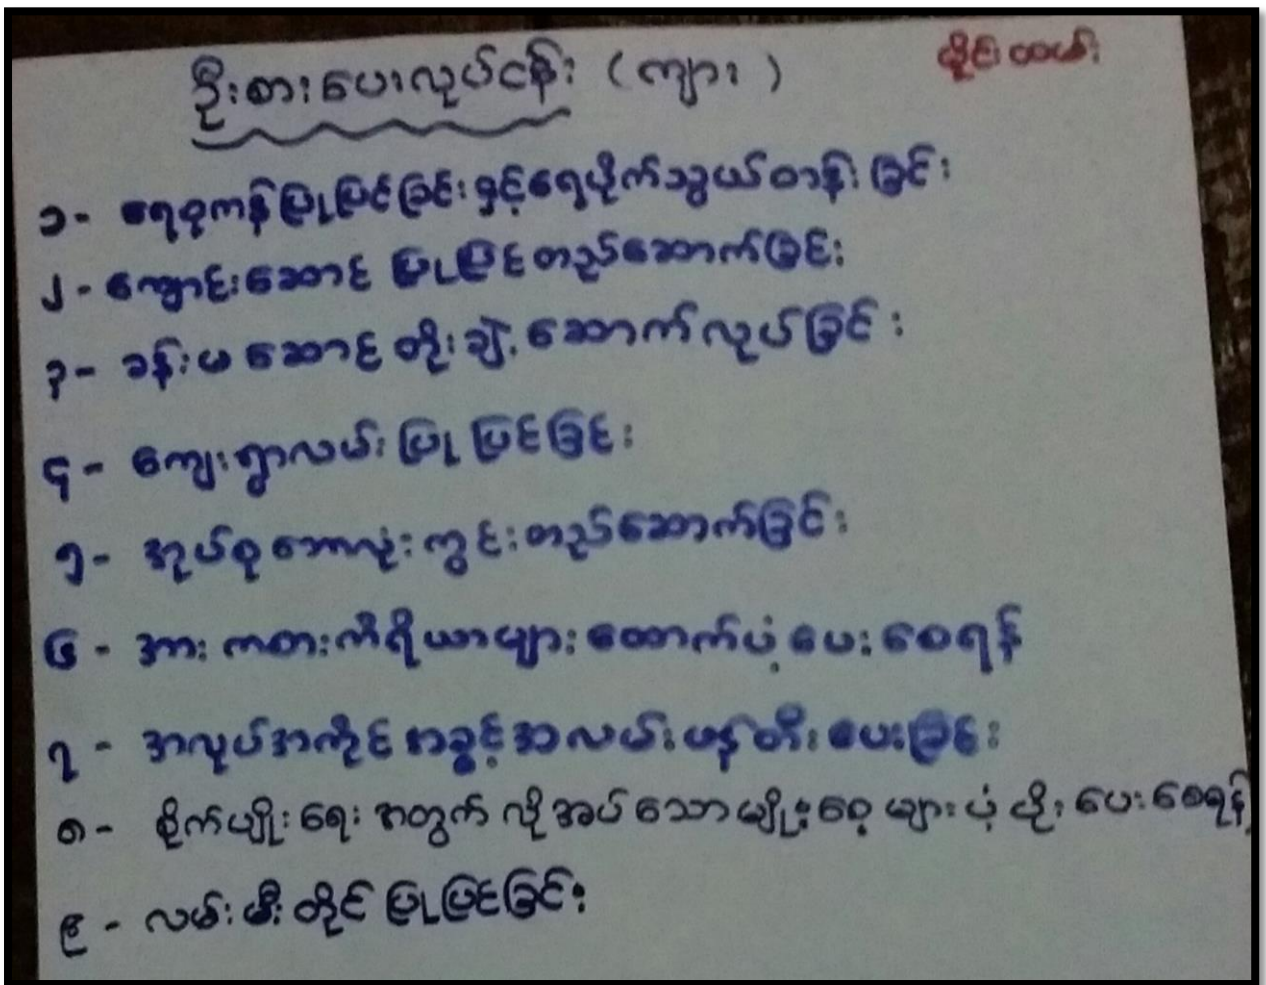 ဦးစားပေးလုပ်ငန်း (ကျား)
ဝိုင်းထမ်း
၁- ရေစုကန်ပြုပြင်ခြင်းနှင့်ရေပိုက်သွယ်တန်းခြင်း
၂- ကျောင်းဆောင် ပြုပြင်တည်ဆောက်ခြင်း
၃- ခန်းမဆောင် တိုးချဲ့ ဆောက်လုပ်ခြင်း
၄- ကျေးရွာလမ်း ပြုပြင်ခြင်း
၅- အုပ်စုဘောလုံးကွင်းတည်ဆောက်ခြင်း
၆- အားကစားကိရိယာများ ထောက်ပံ့ပေးစေရန်
၇- အလုပ်အကိုင်အခွင့်အလမ်းဖန်တီးပေးခြင်း
၈- စိုက်ပျိုးရေးအတွက် လိုအပ်သောမျိုးစေ့များပံ့ပိုးပေးစေရန်
၉- လမ်းမီးတိုင် ပြုပြင်ခြင်း